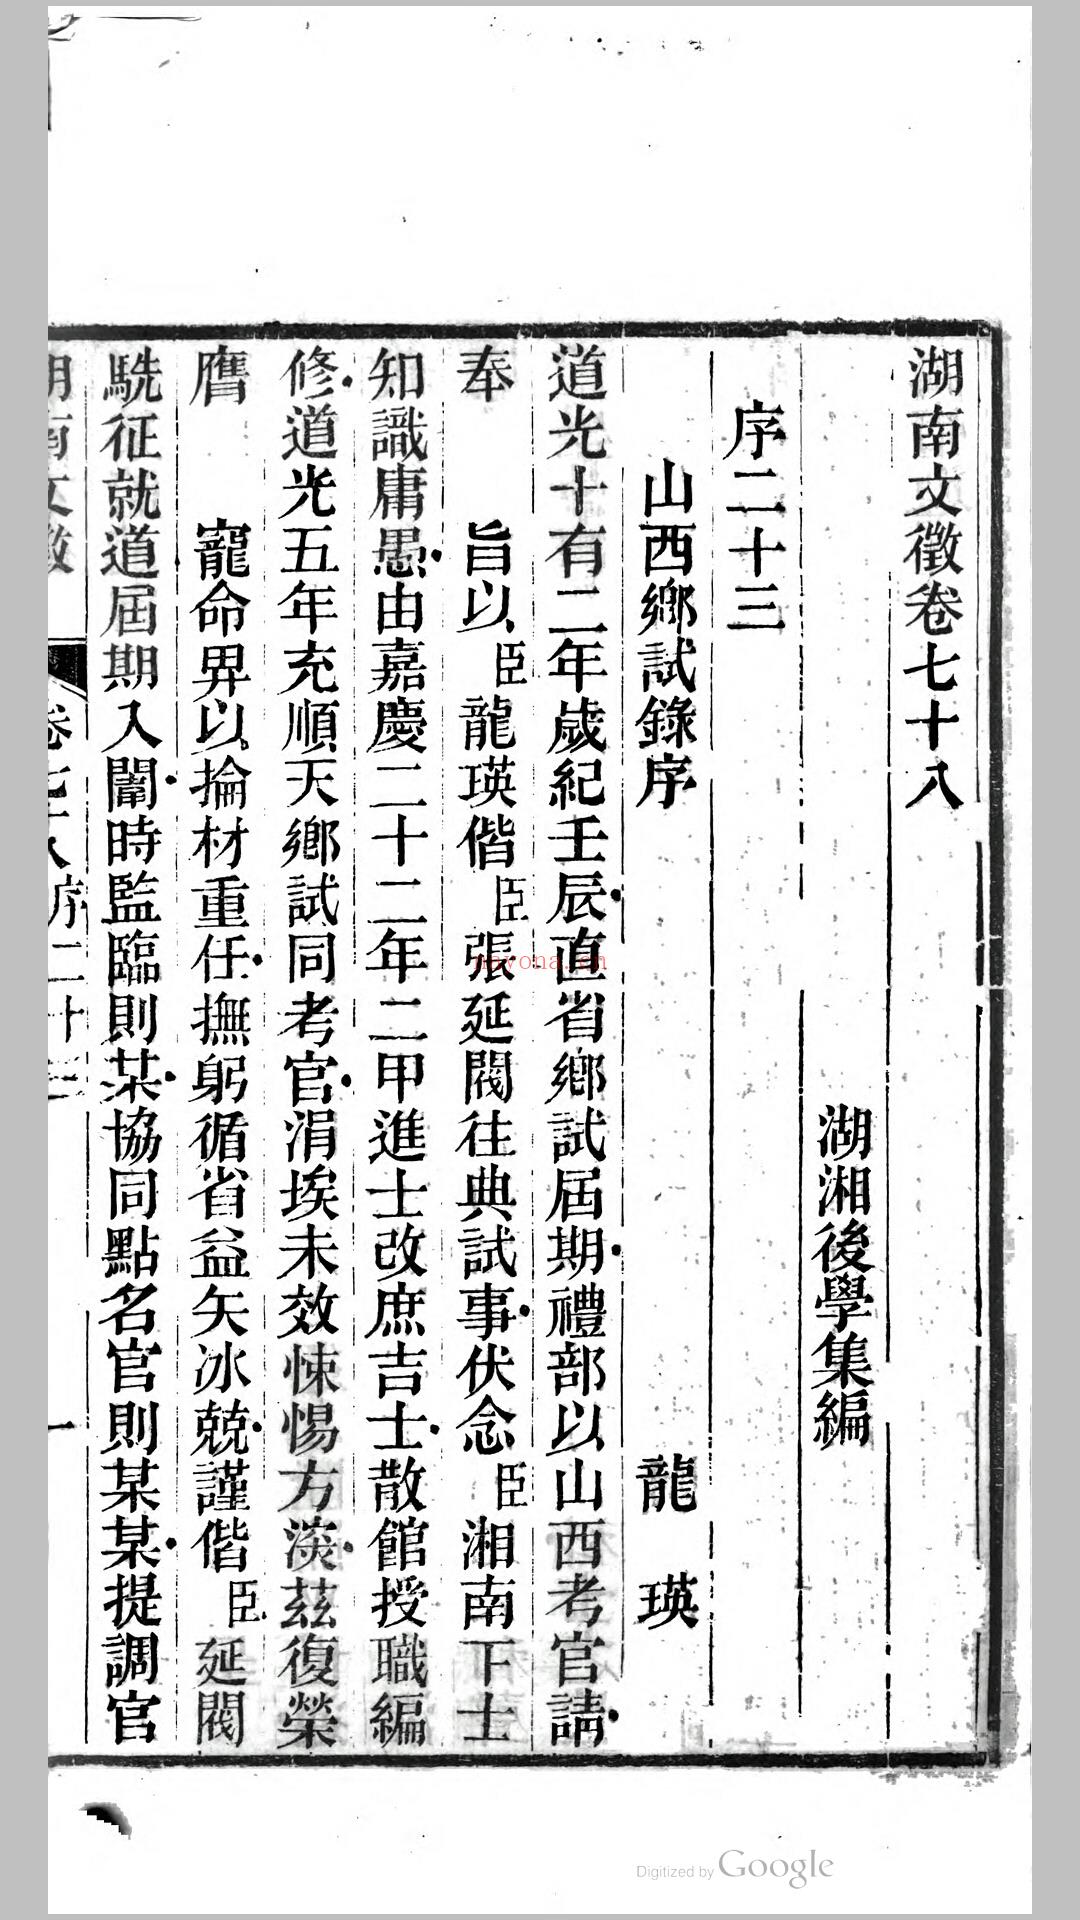 湖南文徵卷七十八
湖湘後學集編
序二十三
山西鄉試錄序 龍 瑛
道光十有二年歲紀壬辰直省鄉試屆期禮部以山西考官請
奉 旨以臣龍瑛偕臣張延閥往典試事伏念臣湘南下士
知識庸愚由嘉慶二十二年二甲進士改庶吉士散館授職編
修道光五年充順天鄉試同考官涓埃未效悚惕方深茲復榮
膺 寵命畀以掄材重任撫躬循省益矢冰兢謹偕臣延閥
駪征就道屆期入闈時監臨則某協同點名官則某某提調官
湖南文徵 卷七十八序二十三 一
nayona.cn
Digitized by Google